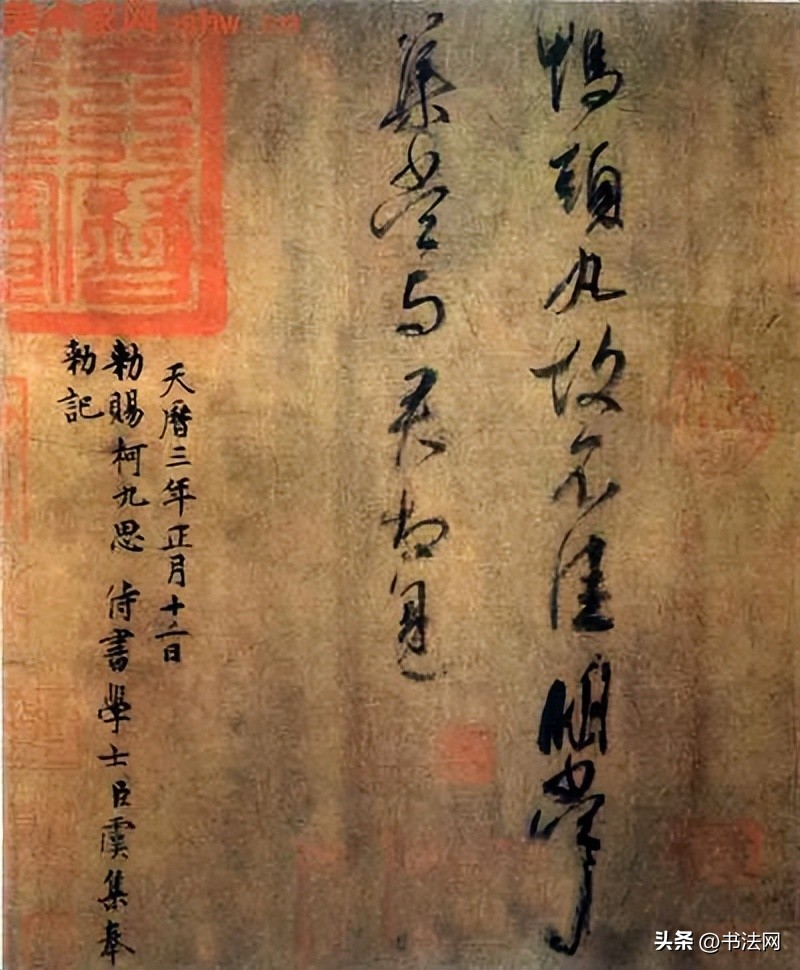 鴨頭丸故不佳明當必
集當与君相見
天曆三年正月十二日
勅賜柯九思 侍書學士臣虞集奉
勅記
美术家网
头条 @书法网